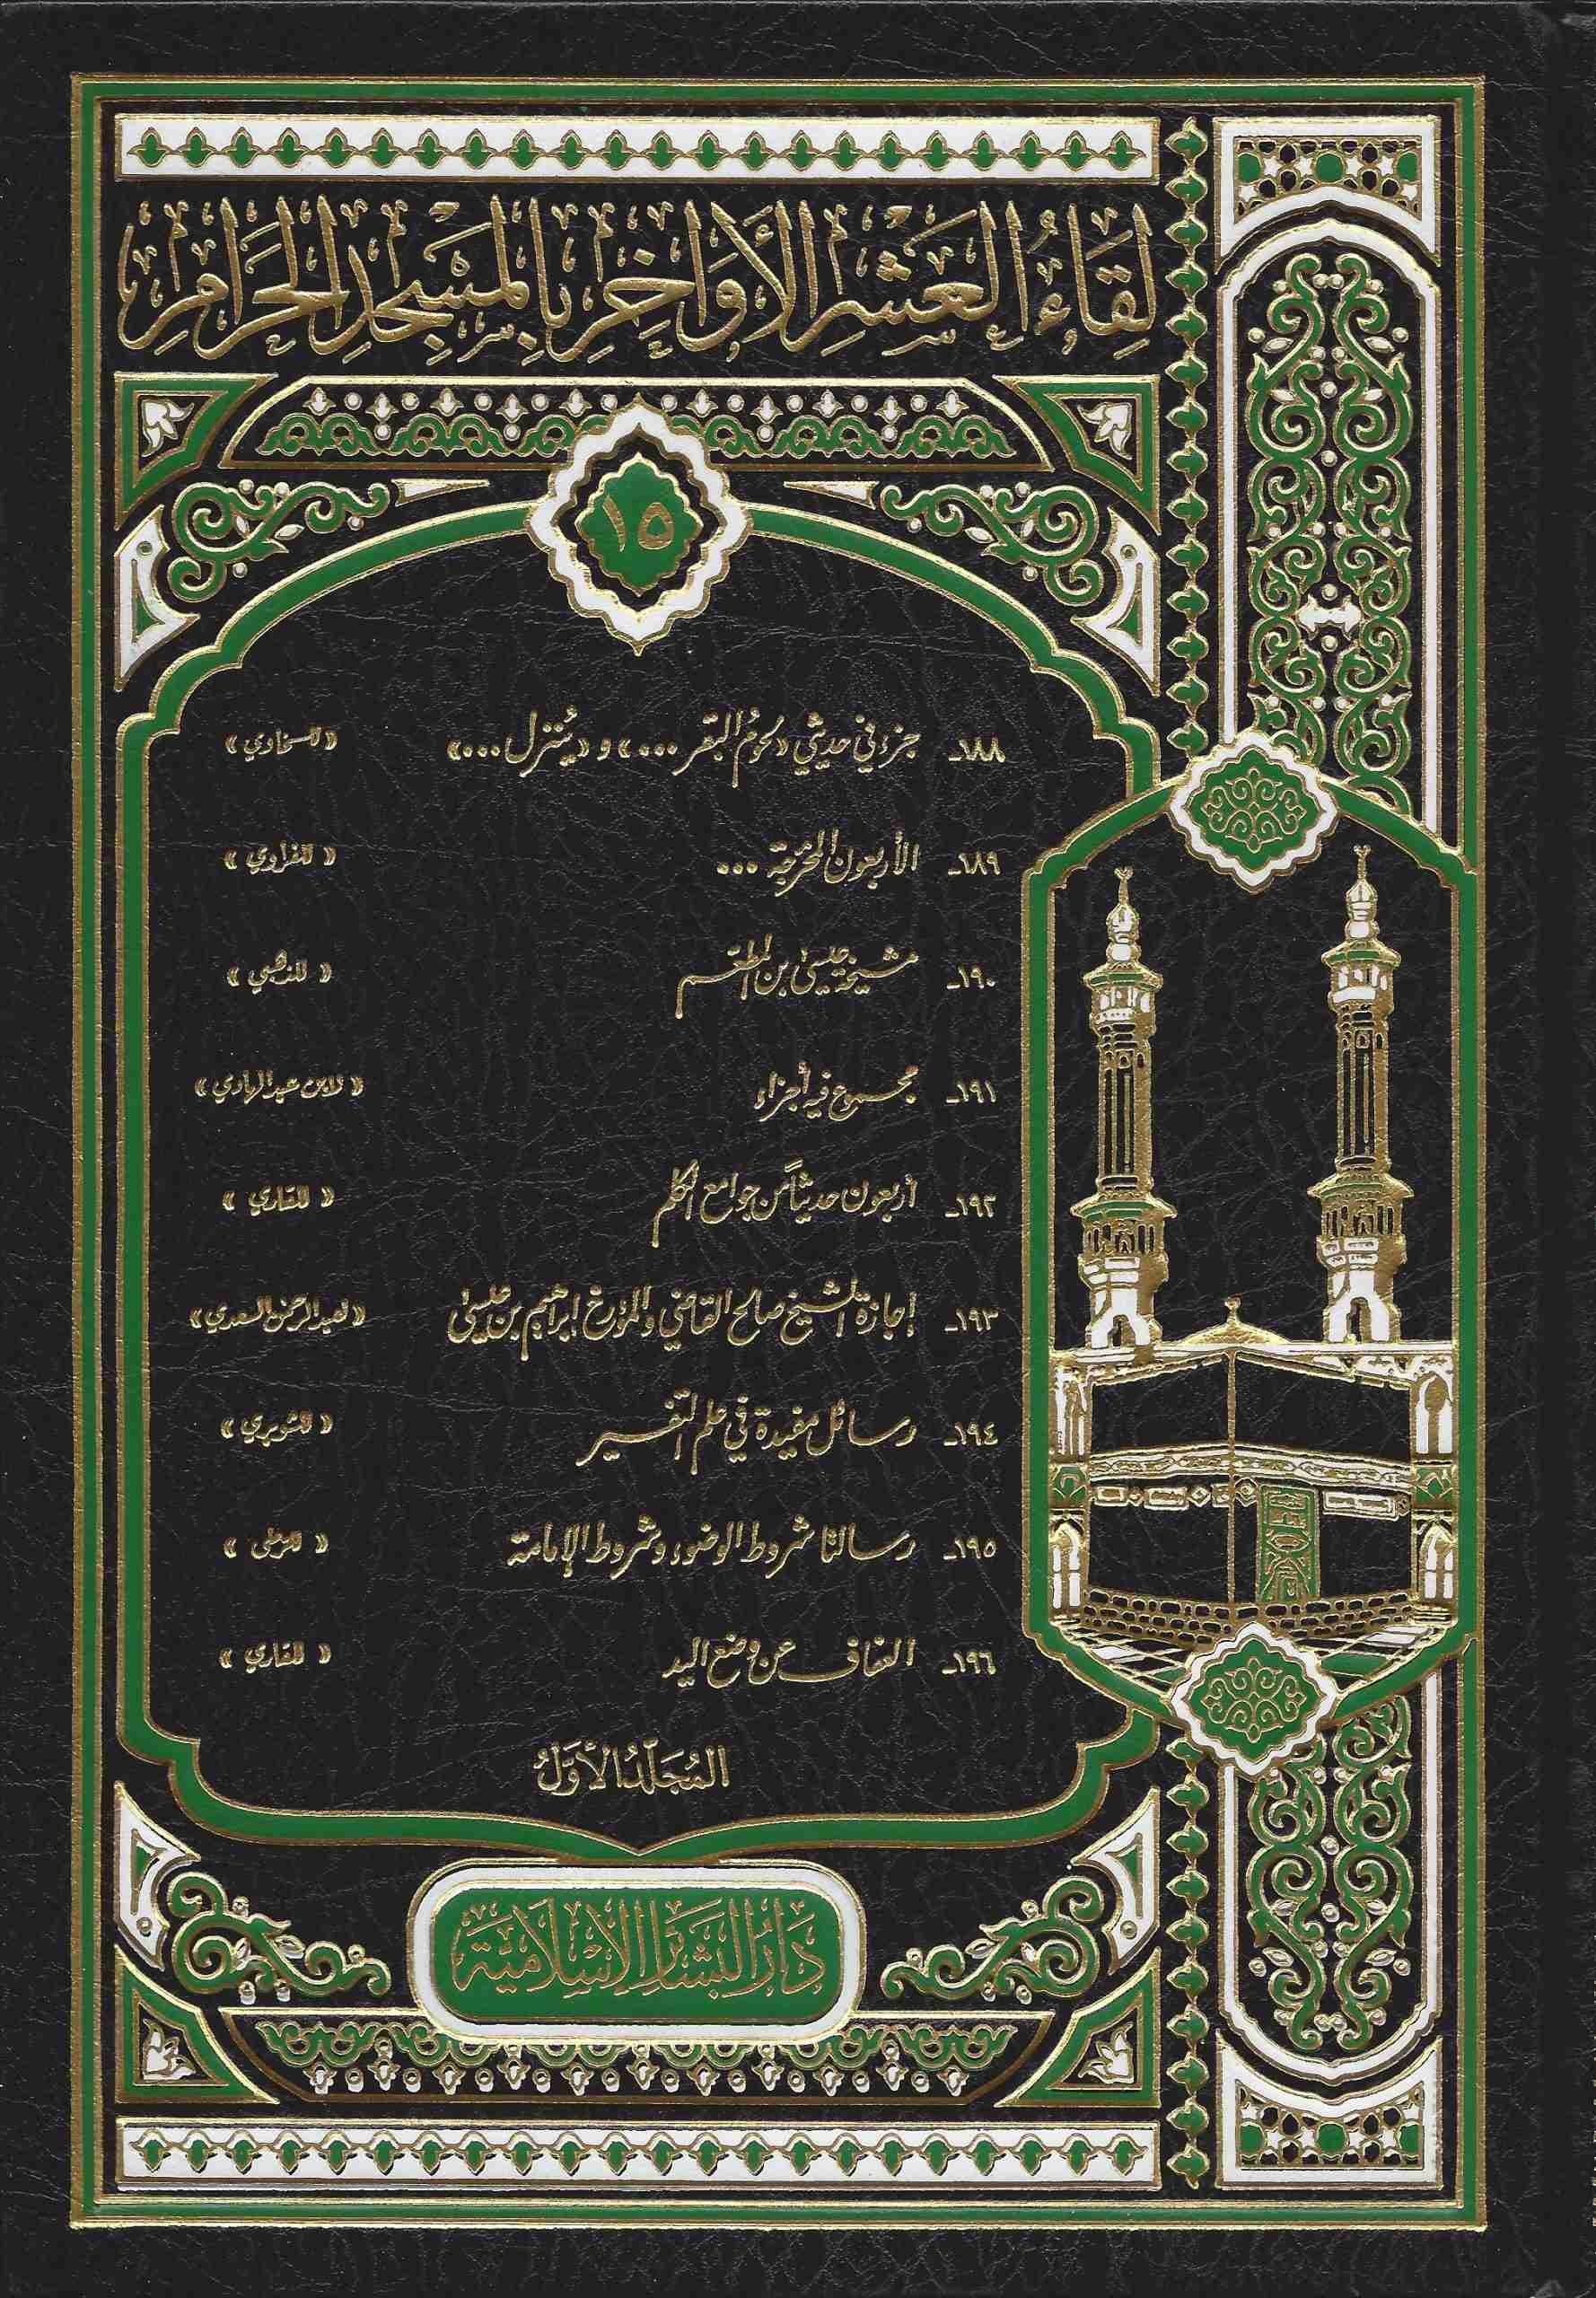 لِقَاءُ العَشْرِ الأَوَاخِرِ بِالمَسْجِدِ الحَرَامِ
١٥
١٨٨ـ جزء في حديثي «لحوم البقر ...» و «يُنزل ...» «للسخاوي»
١٨٩ـ الأربعون المخرجة ... «للفراوي»
١٩٠ـ مشيخة عيسى بن المطعّم «للذهبي»
١٩١ـ مجموع فيه أجزاء «لابن عبد الهادي»
١٩٢ـ أربعون حديثاً من جوامع الكلم «للقاري»
١٩٣ـ إجازة الشيخ صالح القاضي والمؤرخ إبراهيم بن عيسى «لعبد الرحمن السعدي»
١٩٤ـ رسائل مفيدة في علم التفسير «للشوبري»
١٩٥ـ رسالتا شروط الوضوء وشروط الإمامة «للرملي»
١٩٦ـ العفاف عن وضع اليد «للقاري»
المُجَلَّدُ الأَوَّلُ
دَارُ البَشَائِرِ الإِسْلَامِيَّة